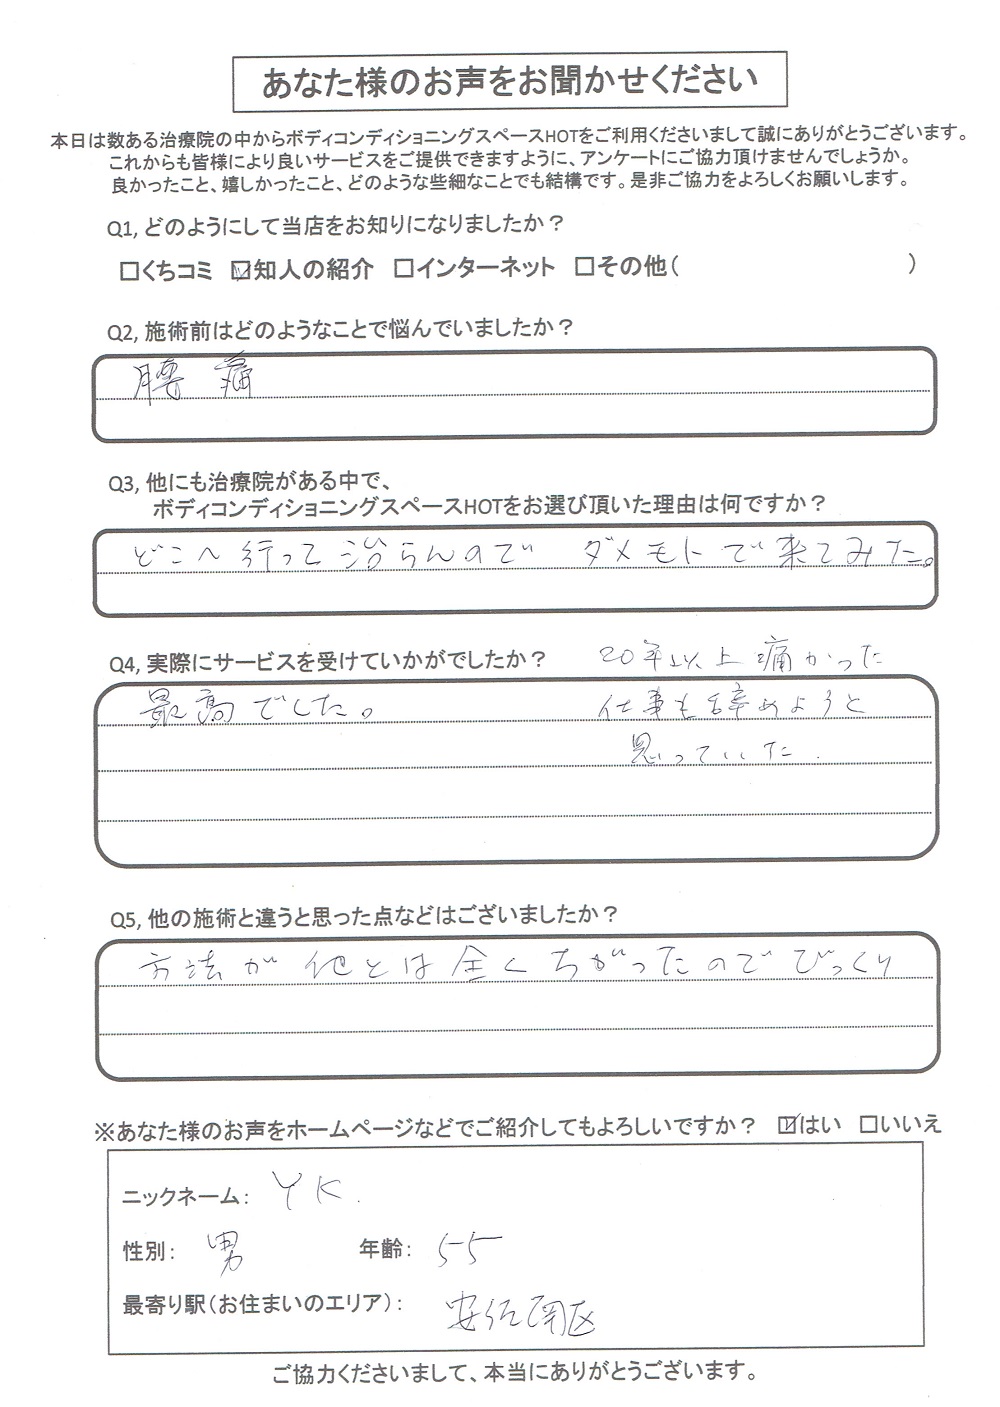 あなた様のお声をお聞かせください
本日は数ある治療院の中からボディコンディショニングスペースHOTをご利用くださいまして誠にありがとうございます。
これからも皆様により良いサービスをご提供できますように、アンケートにご協力頂けませんでしょうか。
良かったこと、嬉しかったこと、どのような些細なことでも結構です。是非ご協力をよろしくお願いします。
Q1, どのようにして当店をお知りになりましたか？
□くちコミ ☑知人の紹介 □インターネット □その他（ ）
Q2, 施術前はどのようなことで悩んでいましたか？
腰痛
Q3, 他にも治療院がある中で、
ボディコンディショニングスペースHOTをお選び頂いた理由は何ですか？
どこへ行って治らんので ダメモトで来てみた。
Q4, 実際にサービスを受けていかがでしたか？
最高でした。
20年以上痛かった
仕事も辞めようと
思っていた.
Q5, 他の施術と違うと思った点などはございましたか？
方法が他とは全くちがったのでびっくり
※あなた様のお声をホームページなどでご紹介してもよろしいですか？ ☑はい □いいえ
ニックネーム： YK.
性別： 男 年齢： 55
最寄り駅（お住まいのエリア）： 安佐南区
ご協力くださいまして、本当にありがとうございます。